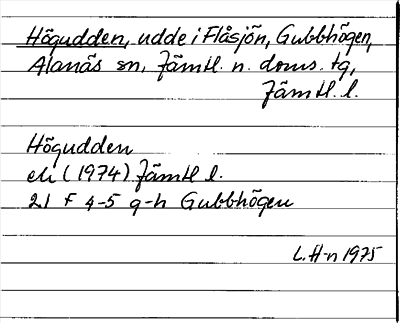 Högudden, udde i Flåsjön, Gubbhögen,
Alanäs sn, Jämtl. n. doms. tg,
Jämtl. l.
Högudden
ek (1974) Jämtl l.
21 F 4-5 g-h Gubbhögen
L. H-n 1975